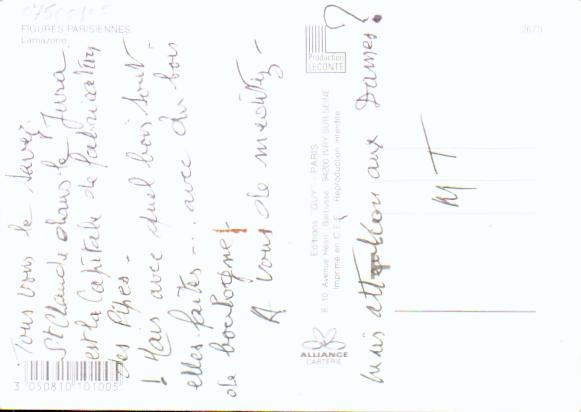 FIGURES PARISIENNES
L'amazone
2673
Tous vous le savez.
St Claude dans le Jura
est la Capitale de fabrication
des Pipes -
! Mais avec quel bois sont-
elles faites -... avec du bois
de
A vous de méditer -
Production
LECONTE
Editions "GUY" - PARIS
8, 10 Avenue Henri Barbusse - 94200 IVRY SUR SEINE
Imprimé en C.E.E. Reproduction interdite
ALLIANCE
CARTERIE
mais attention aux Dames ?
M T
3 050810 101005